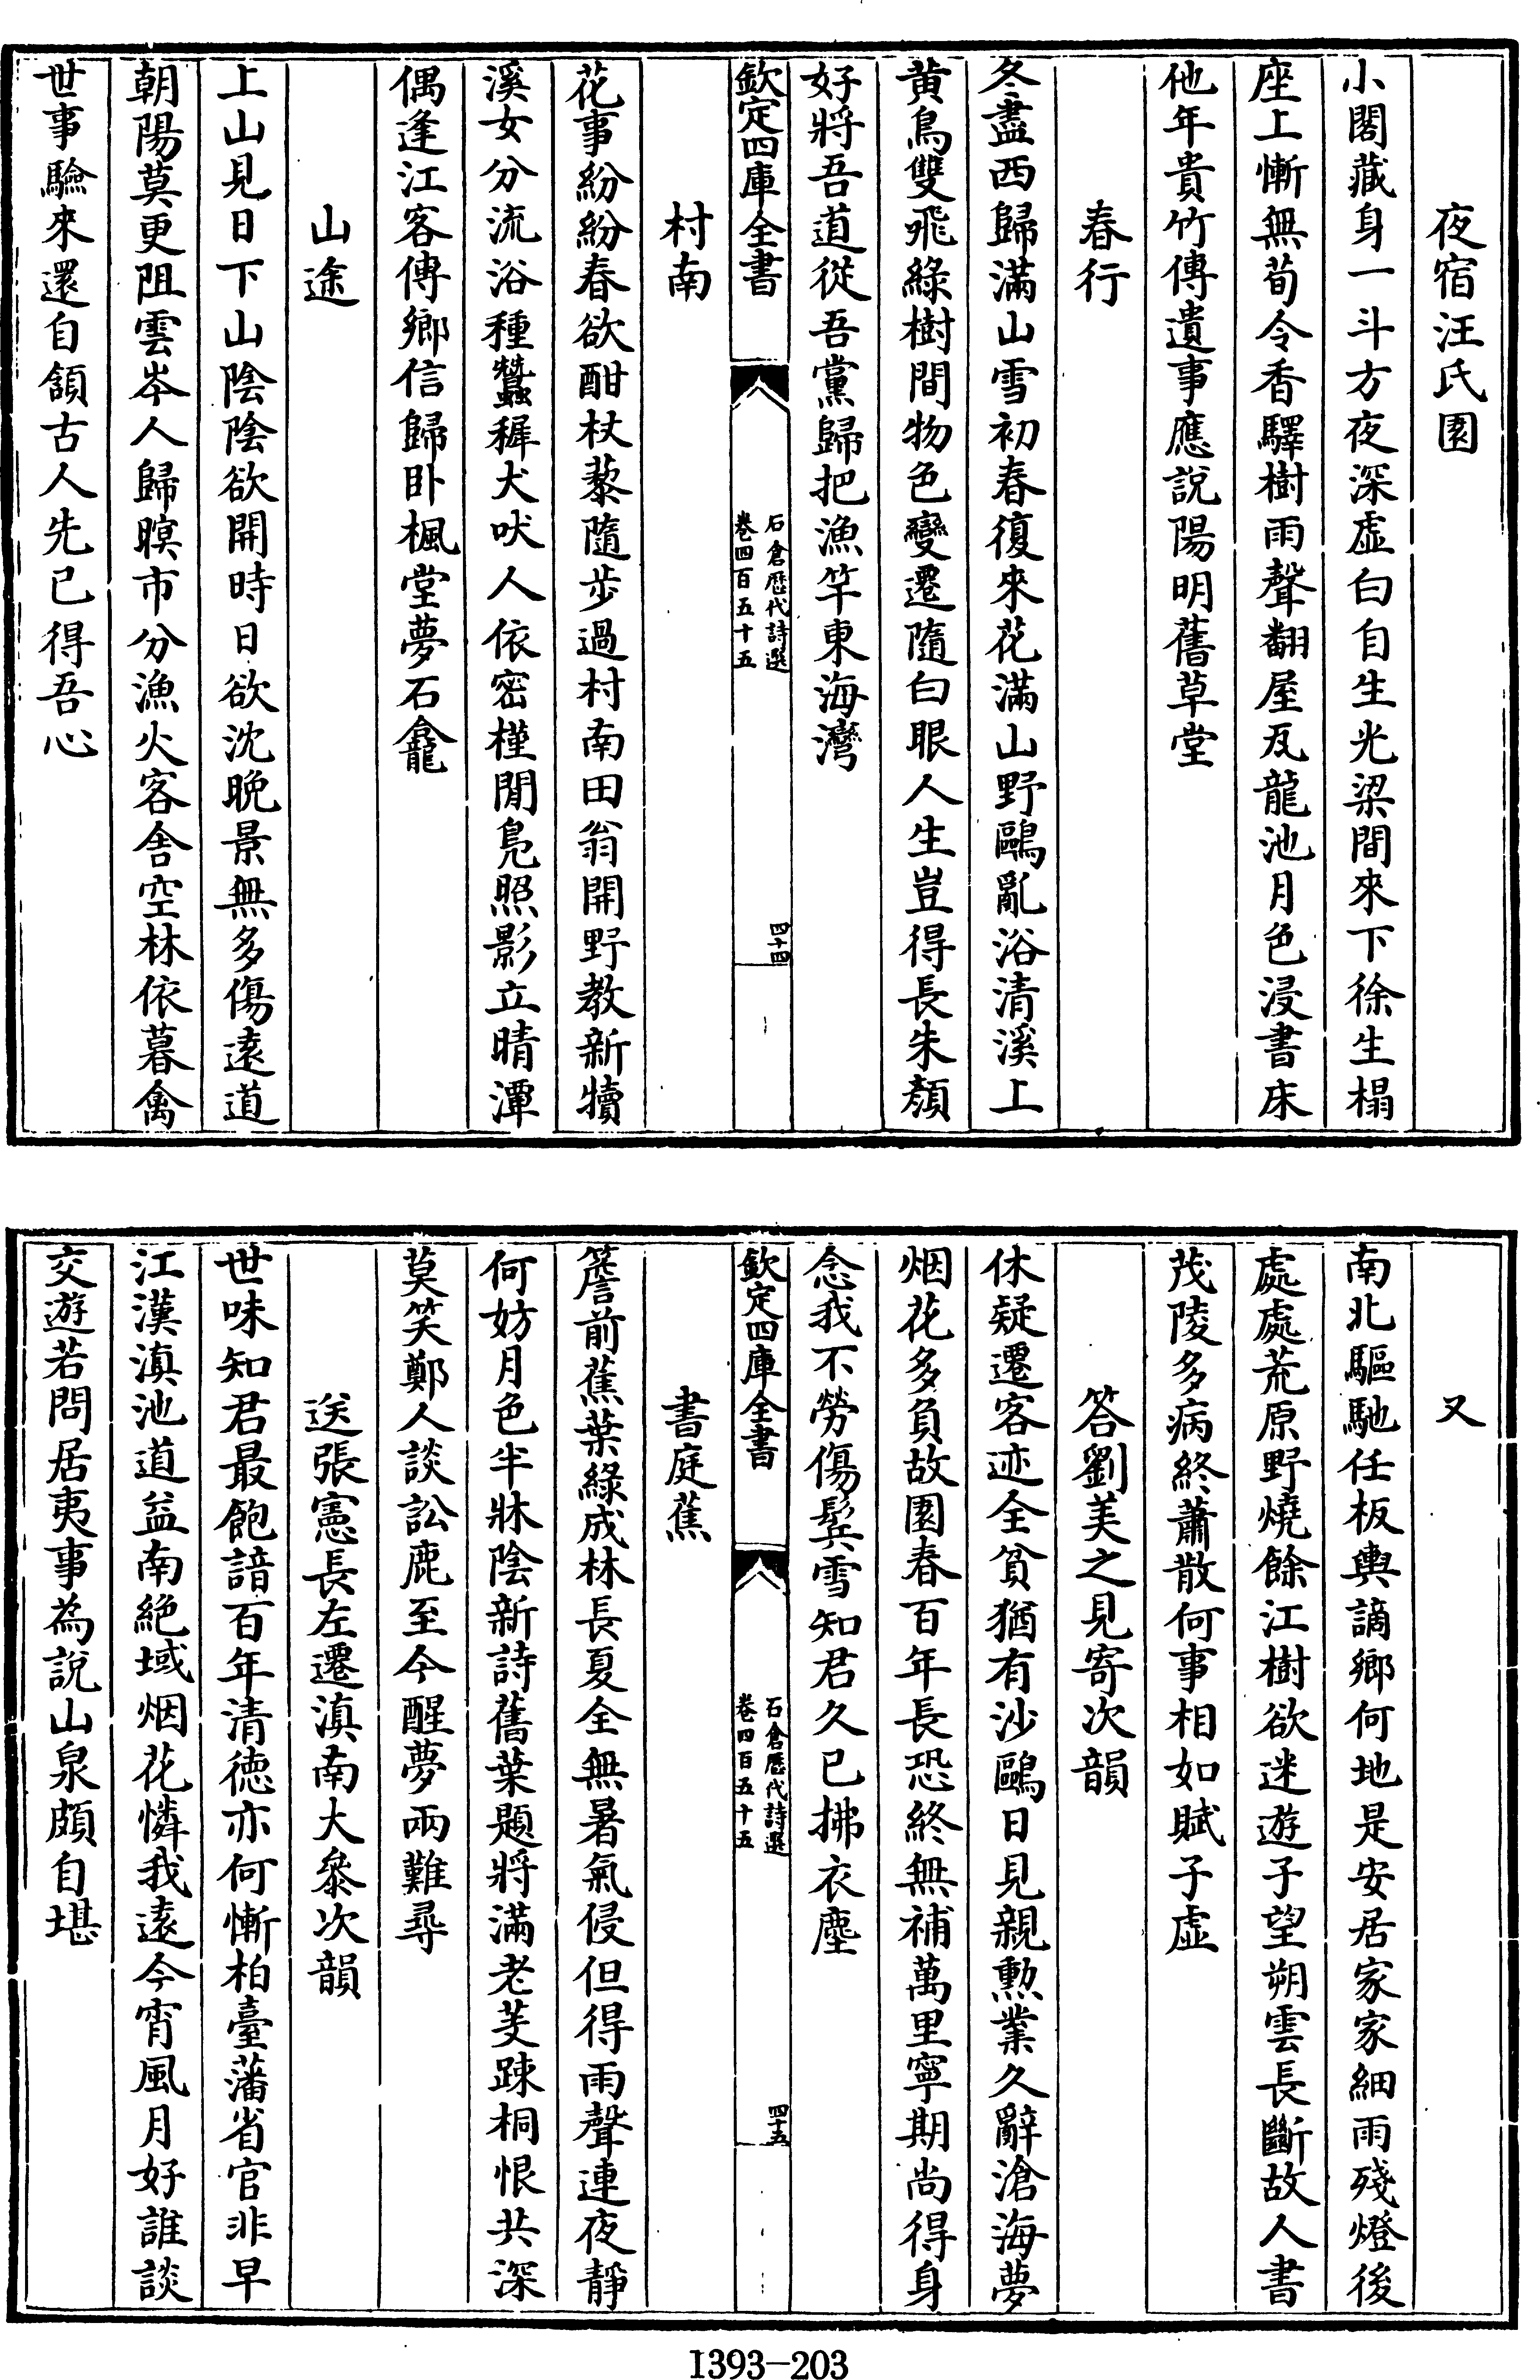 夜宿汪氏園
小閣藏身一斗方夜深虛白自生光梁間來下徐生榻
座上慚無荀令香驛樹雨聲翻屋瓦龍池月色浸書床
他年貴竹傳遺事應說陽明舊草堂
春行
冬盡西歸滿山雪初春復來花滿山野鷗亂浴清溪上
黄鳥雙飛綠樹間物色變遷隨白眼人生豈得長朱顏
好將吾道從吾黨歸把漁竿東海灣
欽定四庫全書
石倉歷代詩選
卷四百五十五
四十四
村南
花事紛紛春欲酣杖藜隨步過村南田翁開野教新犢
溪女分流浴種蠶穉犬吠人依密槿閒鳬照影立晴潭
偶逢江客傳鄉信歸卧楓堂夢石龕
山途
上山見日下山陰陰欲開時日欲沈晚景無多傷遠道
朝陽莫更阻雲岑人歸暝市分漁火客舍空林依暮禽
世事驗來還自頷古人先已得吾心
又
南北驅馳任板輿謫鄉何地是安居家家細雨殘燈後
處處荒原野燒餘江樹欲迷遊子望朔雲長斷故人書
茂陵多病終蕭散何事相如賦子虛
答劉美之見寄次韻
休疑遷客迹全貧猶有沙鷗日見親勲業久辭滄海夢
烟花多負故園春百年長恐終無補萬里寧期尚得身
念我不勞傷鬂雪知君久已拂衣塵
欽定四庫全書
石倉歷代詩選
卷四百五十五
四十五
書庭蕉
簷前蕉葉綠成林長夏全無暑氣侵但得雨聲連夜靜
何妨月色半牀陰新詩舊葉題將滿老芰踈桐恨共深
莫笑鄭人談訟鹿至今醒夢兩難尋
送張憲長左遷滇南大叅次韻
世味知君最飽諳百年清德亦何慚柏臺藩省官非早
江漢滇池道益南絕域烟花憐我遠今宵風月好誰談
交遊若問居夷事為說山泉頗自堪
1393-203